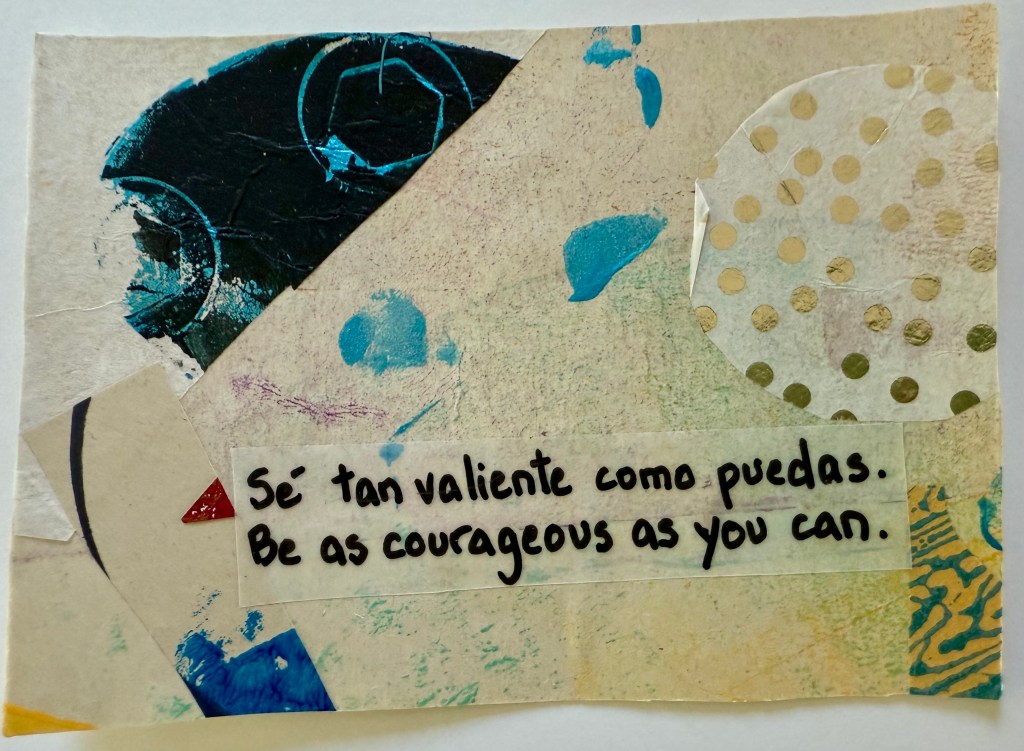 Sé tan valiente como puedas.
Be as courageous as you can.